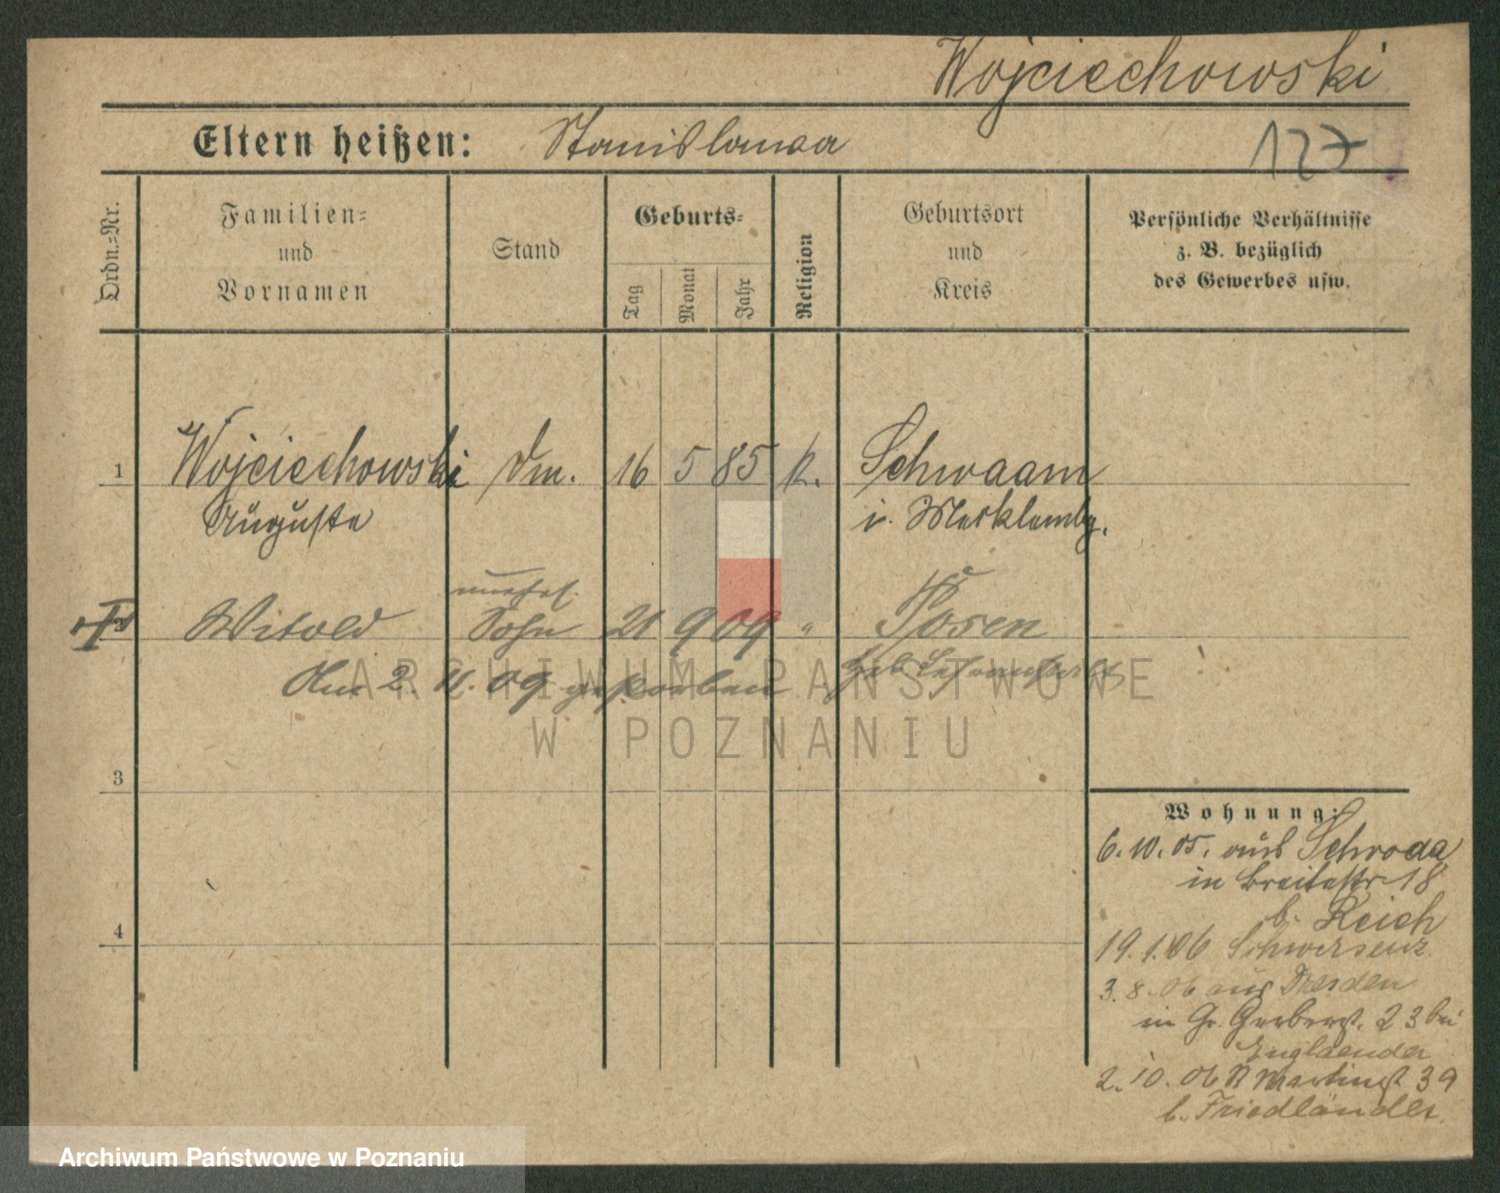 Wojciechowski
Eltern heißen: Stanislawa
127
Ordn.=Nr.
Familien=
und
Vornamen
Stand
Geburts=
Tag
Monat
Jahr
Religion
Geburtsort
und
Kreis
Persönliche Verhältnisse
z. B. bezüglich
des Gewerbes usw.
1 Wojciechowski 16 5 85 k. Schwaam
Auguste i. Mecklembg.
unehel.
Witold Sohn 21 9 09 " Posen
Am 2. 11. 09 gestorben
ARCHIWUM PAŃSTWOWE
W POZNANIU
3
4
Wohnung:
6. 10. 05. aus Schroda
in Breitestr 18
b. Reich
19. 1. 06 Schwersenz.
3. 8. 06 aus Dresden
in Gr. Gerberst. 23 bei
Englaender
2. 10. 06 St Martinst 39
b. Friedländer
Archiwum Państwowe w Poznaniu